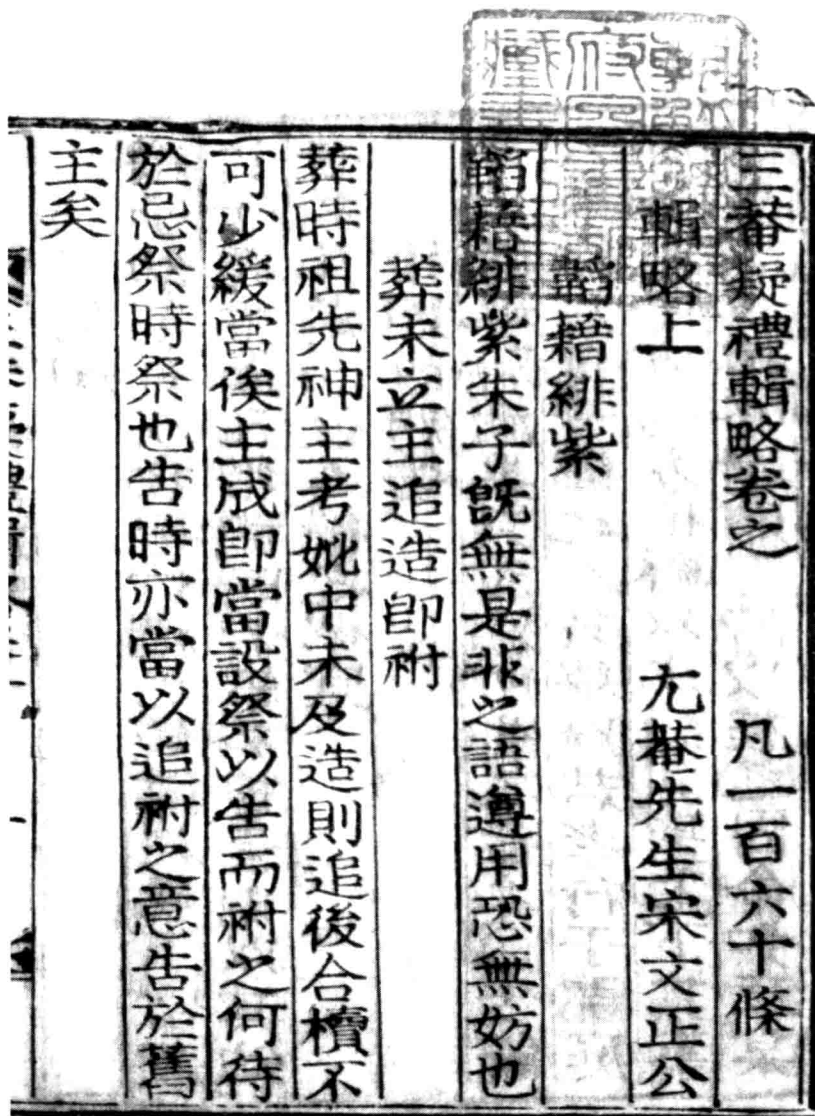 三菴疑禮輯略卷之 凡一百六十條
輯略上 尤菴先生宋文正公
韜藉緋紫
韜藉緋紫朱子旣無是非之語遵用恐無妨也
葬未立主追造卽祔
葬時祖先神主考妣中未及造則追後合櫝不
可少緩當俟主成卽當設祭以告而祔之何待
於忌祭時祭也告時亦當以追祔之意告於舊
主矣